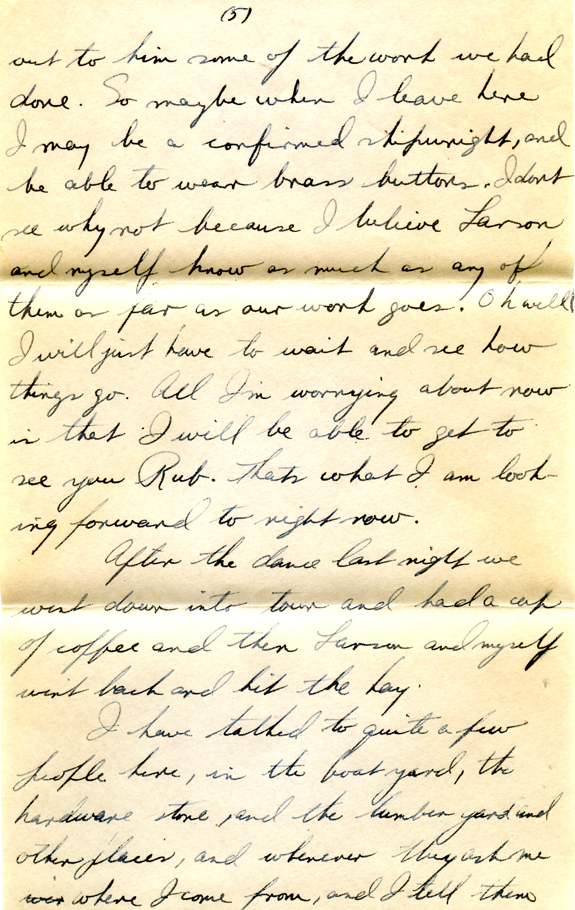 (5)
out to him some of the work we had
done. So maybe when I leave here
I may be a confirmed shipwright, and
be able to wear brass buttons. I dont
see why not because I believe Larson
and myself know as much as any of
them as far as our work goes. Oh well
I will just have to wait and see how
things go. All I'm worrying about now
is that I will be able to get to
see you Rub. Thats what I am look-
ing forward to right now.
After the dance last night we
went down into town and had a cup
of coffee and then Larson and myself
went back and hit the hay.
I have talked to quite a few
people here, in the boat yard, the
hardware store, and the lumber yard and
other places, and whenever they ask me
where I come from, and I tell them